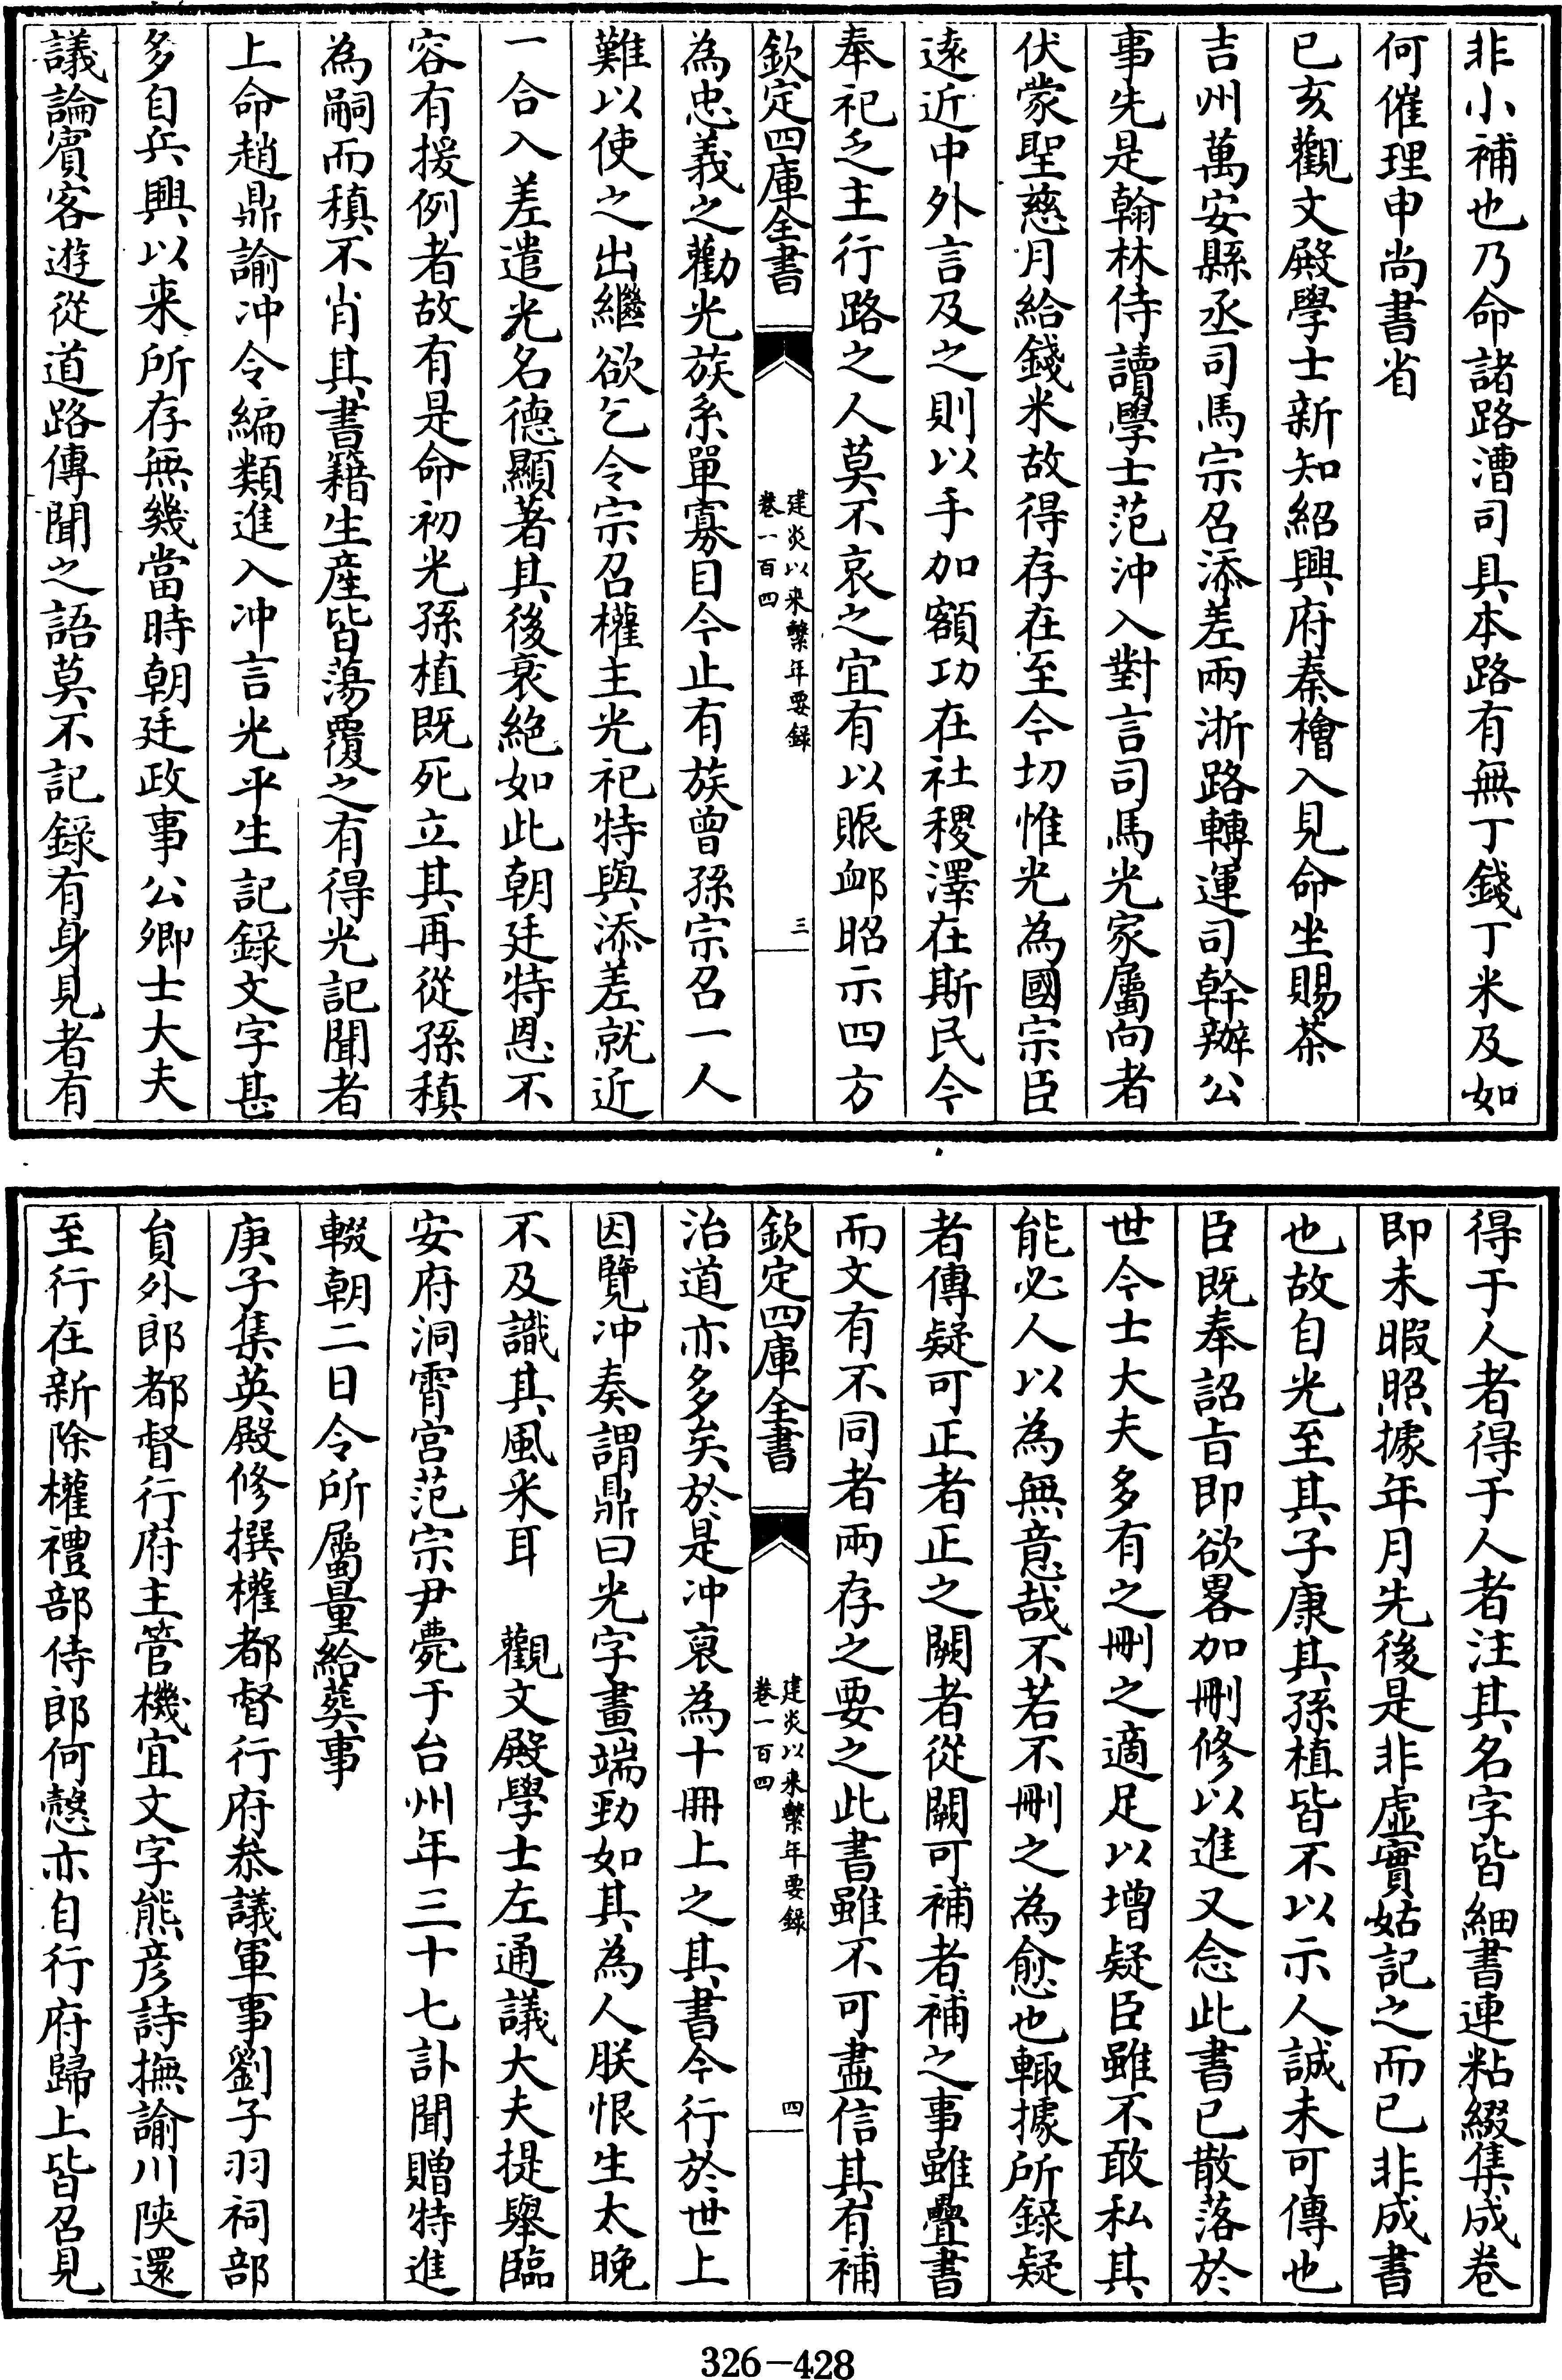 非小補也乃命諸路漕司具本路有無丁錢丁米及如
何催理申尚書省
已亥觀文殿學士新知紹興府秦檜入見命坐賜茶
吉州萬安縣丞司馬宗召添差兩浙路轉運司幹辦公
事先是翰林侍讀學士范沖入對言司馬光家屬向者
伏蒙聖慈月給錢米故得存在至今切惟光為國宗臣
遠近中外言及之則以手加額功在社稷澤在斯民今
奉祀乏主行路之人莫不哀之宜有以賑卹昭示四方
欽定四庫全書
建炎以来繫年要録
卷一百四
三
為忠義之勸光族系單寡目今止有族曾孫宗召一人
難以使之出繼欲乞令宗召權主光祀特與添差就近
一合入差遣光名德顯著其後衰絶如此朝廷特恩不
容有援例者故有是命初光孫植既死立其再從孫稹
為嗣而稹不肖其書籍生産皆蕩覆之有得光記聞者
上命趙鼎諭冲令編類進入冲言光平生記録文字甚
多自兵興以来所存無幾當時朝廷政事公卿士大夫
議論賓客遊從道路傳聞之語莫不記録有身見者有
得于人者得于人者注其名字皆細書連粘綴集成卷
即未暇照據年月先後是非虚實姑記之而已非成書
也故自光至其子康其孫植皆不以示人誠未可傳也
臣既奉詔旨即欲畧加刪修以進又念此書已散落於
世今士大夫多有之刪之適足以增疑臣雖不敢私其
能必人以為無意哉不若不刪之為愈也輙據所録疑
者傳疑可正者正之闕者從闕可補者補之事雖疊書
而文有不同者兩存之要之此書雖不可盡信其有補
欽定四庫全書
建炎以来繫年要録
卷一百四
四
治道亦多矣於是冲裒為十冊上之其書今行於世上
因覽冲奏謂鼎曰光字畫端勁如其為人朕恨生太晚
不及識其風采耳　觀文殿學士左通議大夫提舉臨
安府洞霄宮范宗尹薨于台州年三十七訃聞贈特進
輟朝二日令所屬量給葬事
庚子集英殿修撰權都督行府叅議軍事劉子羽祠部
員外郎都督行府主管機宜文字熊彦詩撫諭川陜還
至行在新除權禮部侍郎何慤亦自行府歸上皆召見
326—428